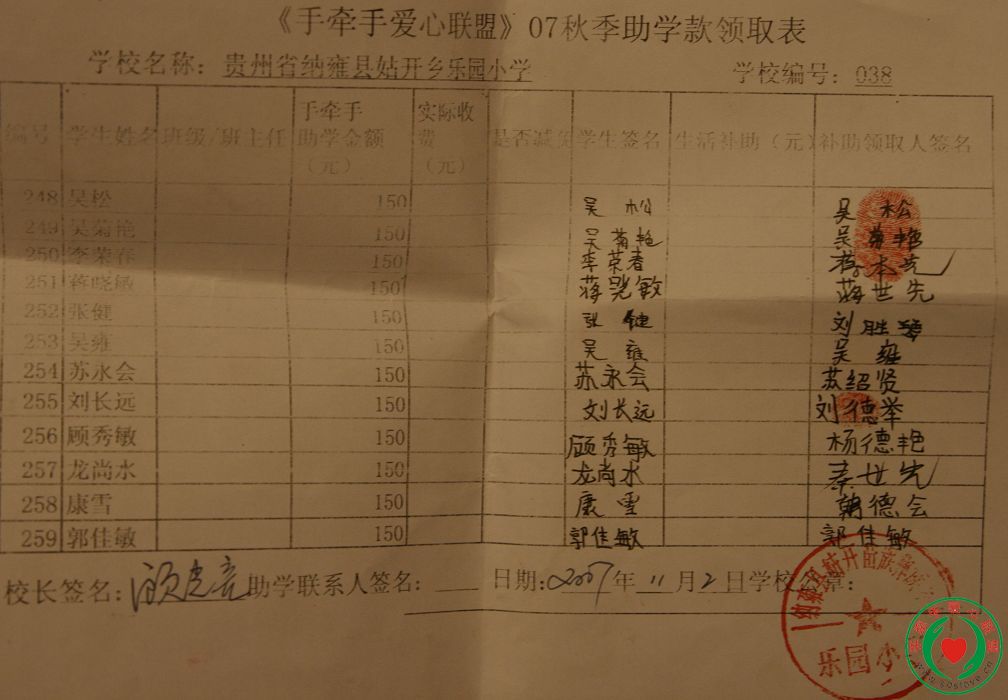 《手牵手爱心联盟》07秋季助学款领取表
学校名称：贵州省纳雍县姑开乡乐园小学 学校编号：038
编号 学生姓名 班级/班主任 手牵手助学金额（元） 实际收费（元） 是否减免 学生签名 生活补助（元） 补助领取人签名
248 吴松 150 吴松 吴松
249 吴菊艳 150 吴菊艳 吴菊艳
250 李荣春 150 李荣春
251 蒋晓敏 150 蒋晓敏 蒋世先
252 张健 150 张健 刘胜
253 吴雍 150 吴雍 吴雍
254 苏永会 150 苏永会 苏绍贤
255 刘长远 150 刘长远 刘德举
256 顾秀敏 150 顾秀敏 杨德艳
257 龙尚水 150 龙尚水 秦世先
258 康雪 150 康雪 德会
259 郭佳敏 150 郭佳敏 郭佳敏
校长签名： 助学联系人签名： 日期：2007年11月2日 学校 章：
乐园小